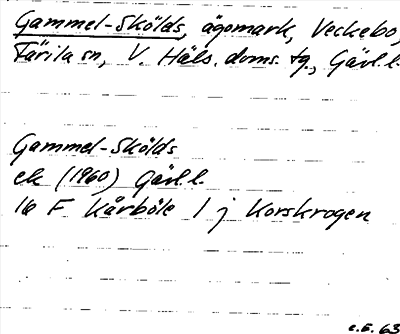 Gammel-Skölds, ägomark, Veckebo,
Färila sn, V. Häls. doms. tg., Gävl.l.
Gammel-Skölds
ek (1960) Gävl.l.
16 F Kårböle 1 j Korskrogen
c.E. 63